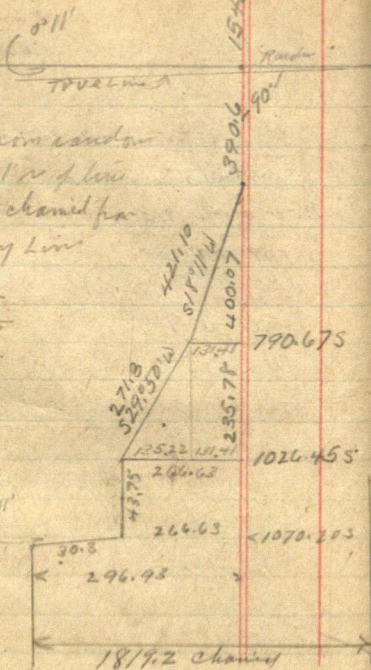 0°11'
154
True Line
Random
390.6
90°
from random
line
chained from
Line
421.10
S18°11'W
400.07
131.41
790.67S
271.8
S29°50'W
235.78
135.22 131.41
1026.45S
266.63
43.75
266.63
1070.20S
30.3
296.93
1819.2 chained